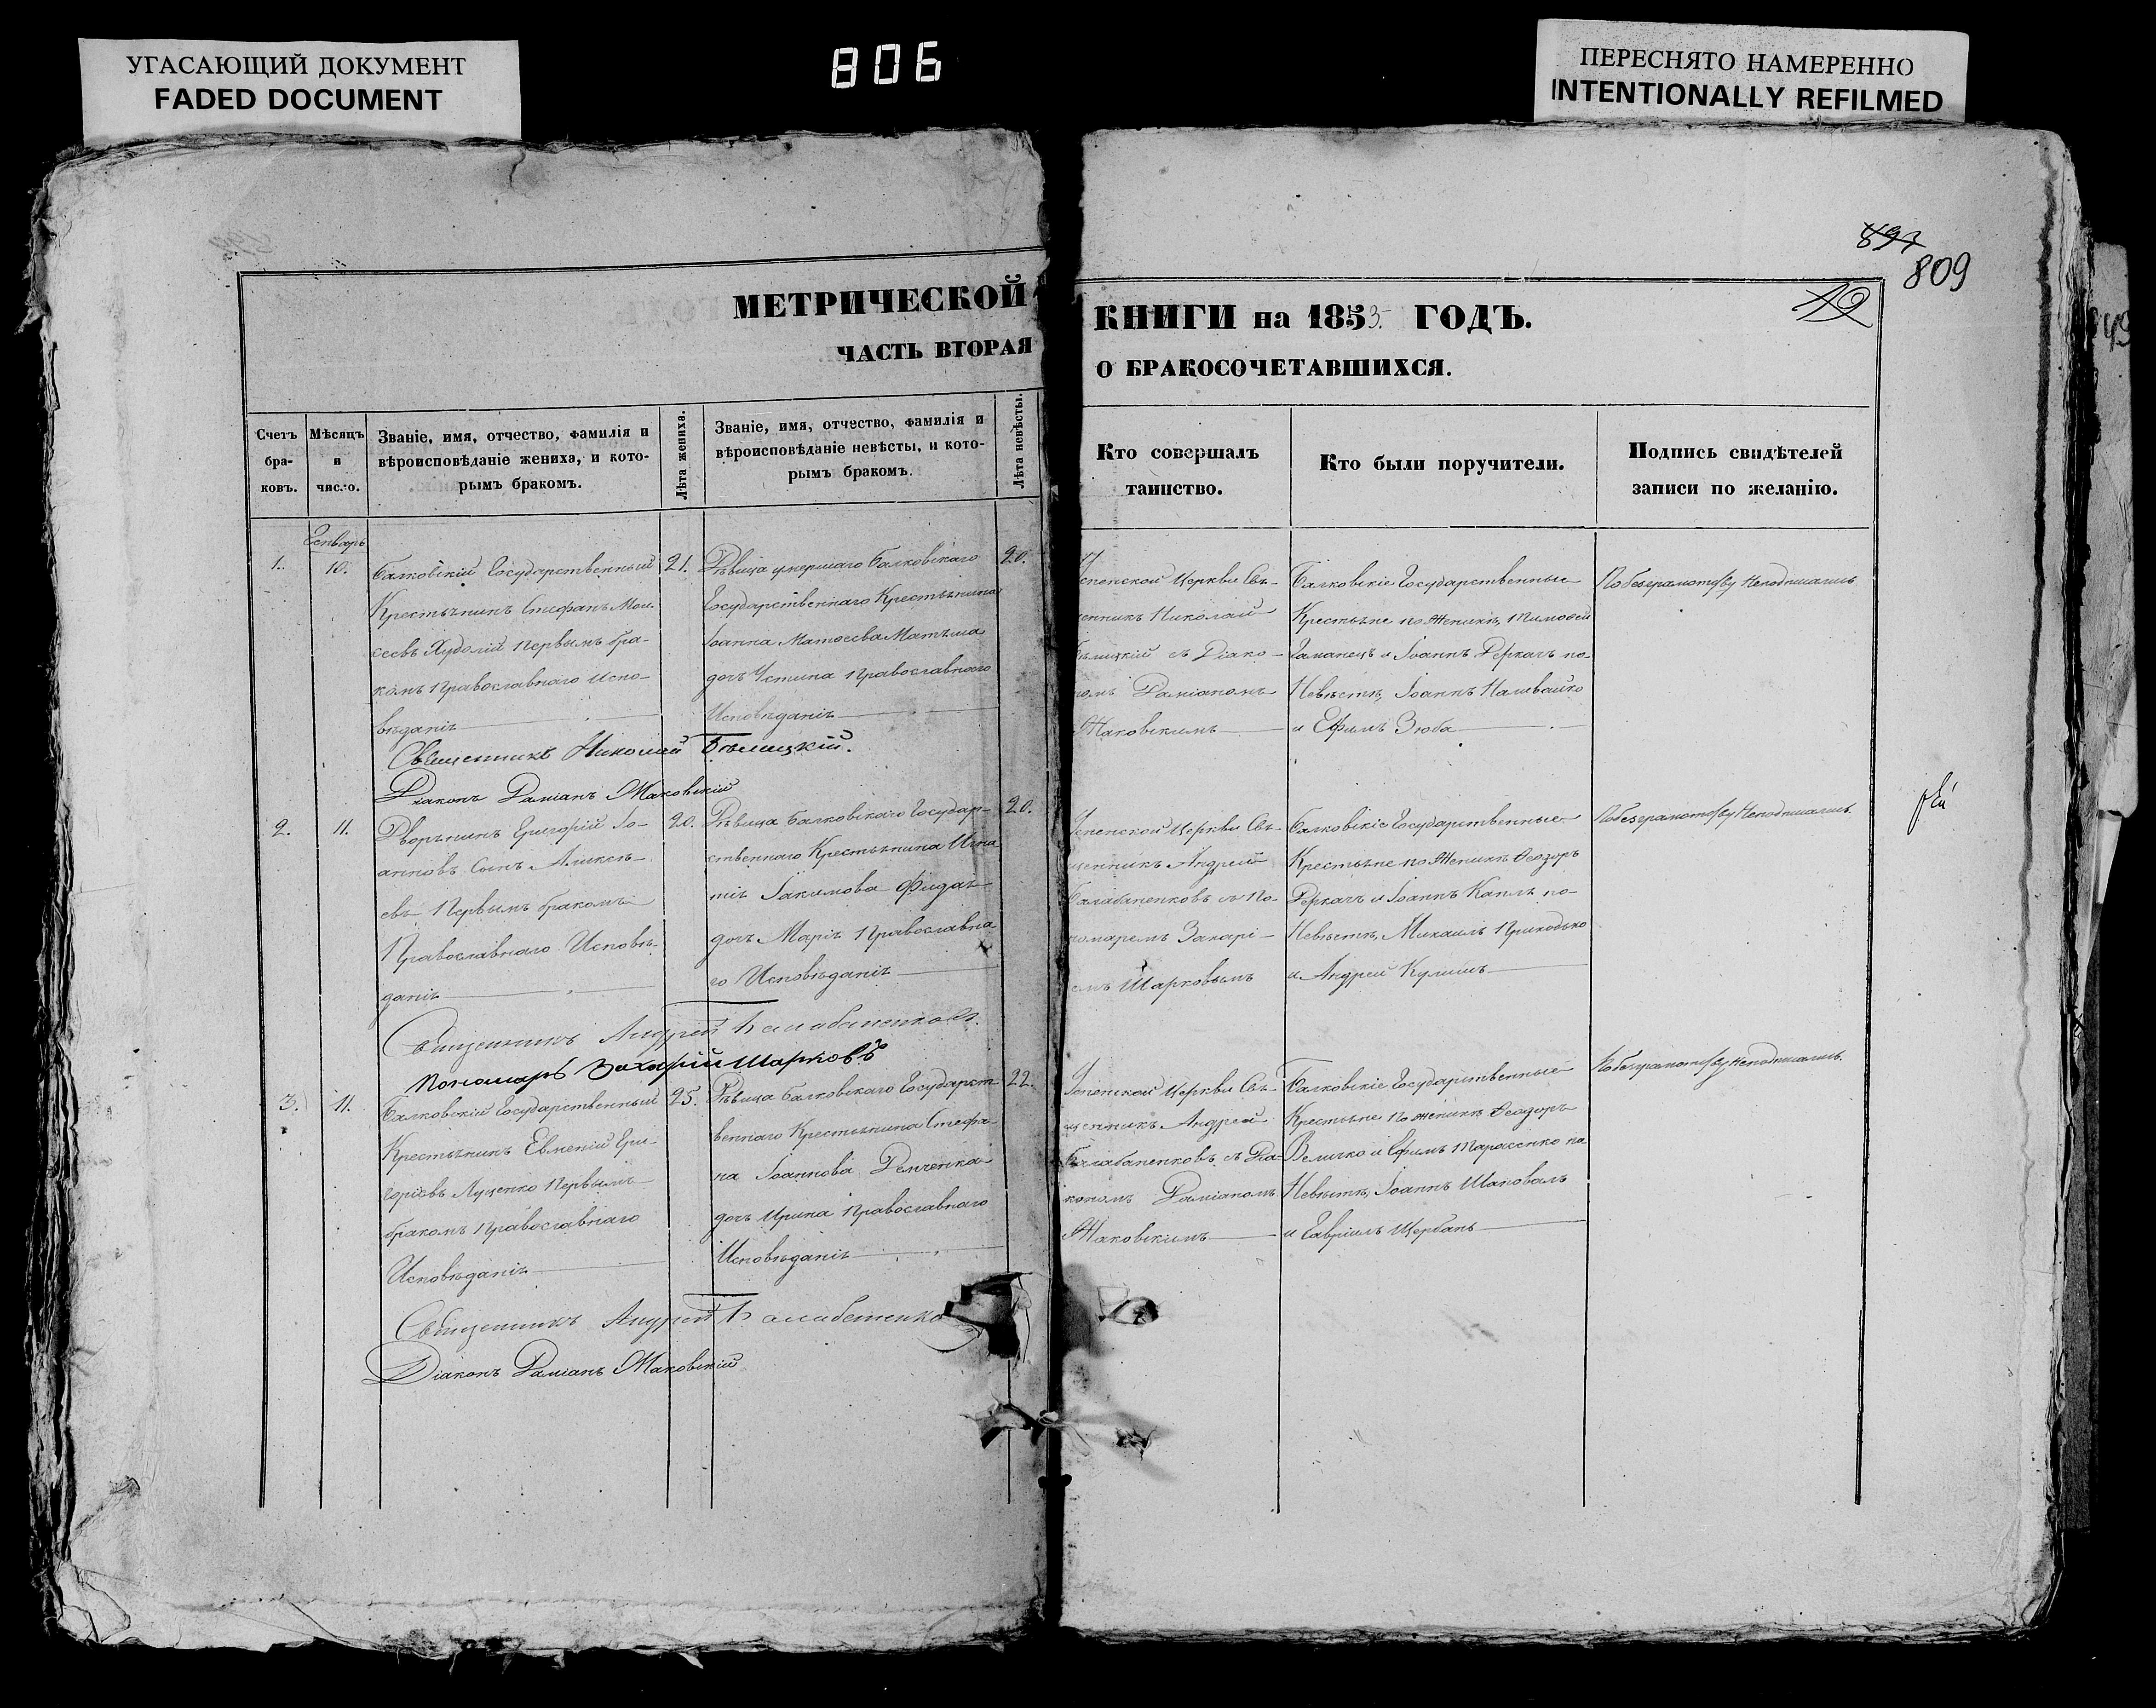 УГАСАЮЩИЙ ДОКУМЕНТ
FADED DOCUMENT
806
ПЕРЕСНЯТО НАМЕРЕННО
INTENTIONALLY REFILMED
809
МЕТРИЧЕСКОЙ КНИГИ на 1853. ГОДЪ.
ЧАСТЬ ВТОРАЯ О БРАКОСОЧЕТАВШИХСЯ.
Счетъ
бра-
ковъ.
Мѣсяцъ
и
число.
Званіе, имя, отчество, фамилія и
вѣроисповѣданіе жениха, и кото-
рымъ бракомъ.
Лѣта жениха.
Званіе, имя, отчество, фамилія и
вѣроисповѣданіе невѣсты, и кото-
рымъ бракомъ.
Лѣта невѣсты.
Кто совершалъ
таинство.
Кто были поручители.
Подпись свидѣтелей
записи по желанію.
1.
10.
Балковскій Государственный
Крестьянинъ Стефанъ Мои-
сеевъ Худолій Первымъ бра-
комъ Православнаго Испо-
вѣданія
21.
Дѣвица умершаго Балковскаго
Государственнаго Крестьянина
Іоанна Матѳеева
дочь Устина Православнаго
Исповѣданія
20.
Успенской Церкви Свя-
щенникъ Николай
Бѣлицкій съ Діако-
номъ Даміаномъ
Маковскимъ
Балковскіе Государственные
Крестьяне по Женихѣ, Тимоѳей
Гаманецъ и Іоаннъ Деркачъ по-
Невѣстѣ, Іоаннъ Наливайко
и Ефимъ Зюба
Священникъ Николай Бѣлицкій.
Діаконъ Даміанъ Маковскій
2.
11.
Дворянинъ Григорій Іо-
анновъ Сынъ Алексѣ-
евъ Первымъ бракомъ
Православнаго Исповѣ-
данія
20.
Дѣвица Балковскаго Государ-
ственнаго Крестьянина Игна
тія Іакимова
дочь Марія Православна
го Исповѣданія
20.
Успенской Церкви Свя-
щенникъ Андрей
Балабаненковъ съ По-
номаремъ Захарі-
емъ Шарковымъ
Балковскіе Государственные
Крестьяне по Женихѣ Ѳеодоръ
Деркачъ и Іоаннъ Капля по-
Невѣстѣ, Михаилъ Приходько
и Андрей Кулишъ
Священникъ Андрей Балабаненковъ.
Пономарь Захарій Шарковъ
3.
11.
Балковскій Государственный
Крестьянинъ Евменій Гри-
горіевъ Луценко Первымъ
бракомъ Православнаго
Исповѣданія
25.
Дѣвица Балковскаго Государст
веннаго Крестьянина Стефа-
на Іоаннова Демченка
дочь Ирина Православнаго
Исповѣданія
22.
Успенской Церкви Свя-
щенникъ Андрей
Балабаненковъ съ Діа-
кономъ Даміаномъ
Маковскимъ
Балковскіе Государственные
Крестьяне по Женихѣ Ѳеодоръ
Величко и Ефимъ Тарасенко па
Невѣстѣ, Іоаннъ Шаповалъ
и Гавріилъ Щербань
Священникъ Андрей
Діаконъ Даміанъ Маковскій